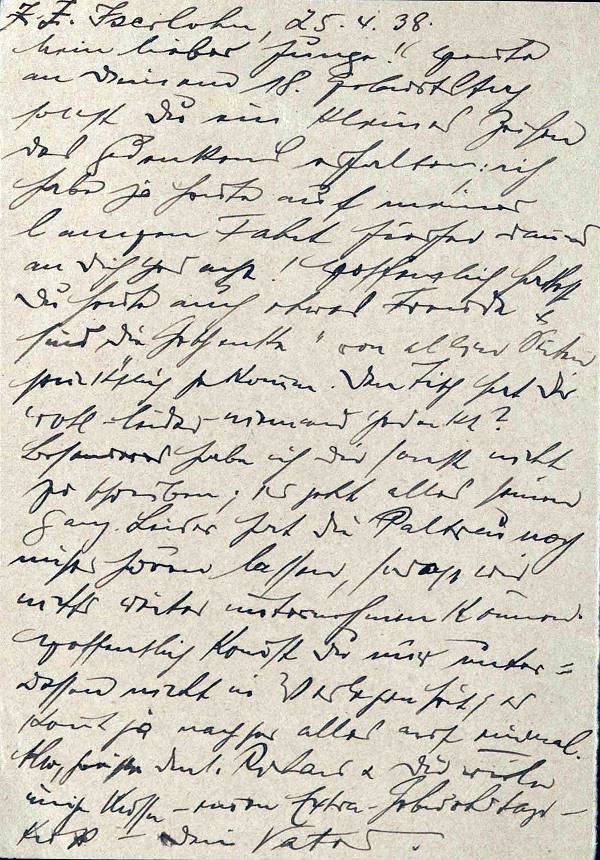 z. Z. Iserlohn, 25. 4. 38.
Mein lieber Junge! Heute
an Deinem 18. Geburtstag
sollst Du ein kleines Zeichen
des Gedenkens erhalten; ich
habe ja heute auf meiner
langen Fahrt dauernd
an Dich gedacht! Hoffentlich hattest
Du heute auch etwas Freude &
sind die Geschenke von allen Seiten
pünktlich gekommen. Den Tisch hat Dir
wohl - leider - niemand gedeckt?
Besonderes habe ich Dir sonst nicht
zu schreiben; es geht alles seinen
Gang. Leider hat die noch
nichts hören lassen, sodass wir
nichts weiter unternehmen können.
Hoffentlich kommst Du mir unter=
dessen nicht in Verlegenheit; es
kommt ja nachher alles auf einmal.
Also &
innige Küsse - einen Extra-Geburtstags-
Kuss - Dein Vater.